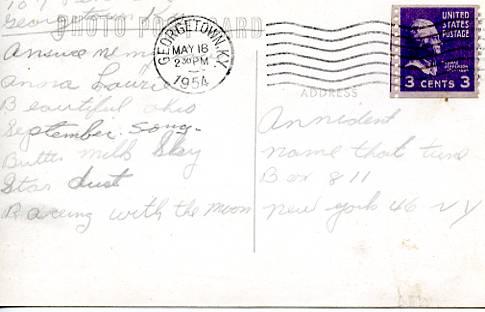 Georgetown Ky
PHOTO POSTCARD
Answer nemi
anna Laurie
Beautiful Ohio
September. Song.
Butter milk Sky
Star dust
Raceing with the moon
GEORGETOWN, KY.
MAY 18
2 30 PM
1954
UNITED
STATES
POSTAGE
THOMAS
JEFFERSON
3 CENTS 3
ADDRESS
name that tune
Box 811
new york 46 NY